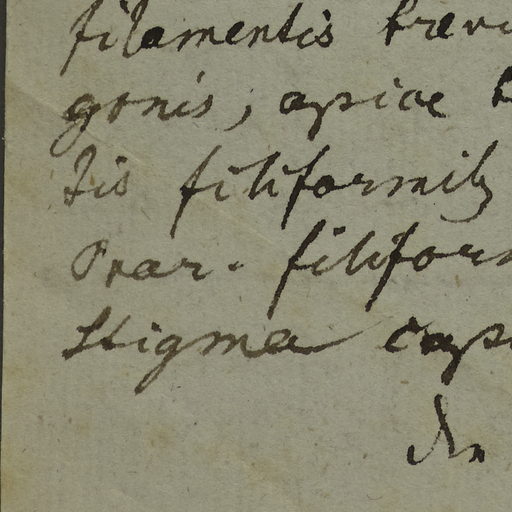 filamentis brevi
gonis, apice b
tis filiformib
Ovar. filiform
Stigma caps
An